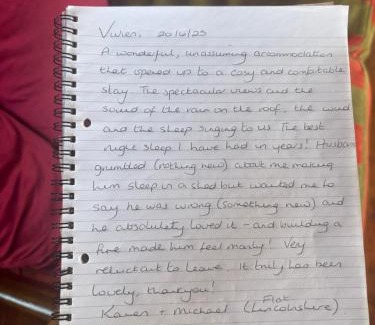 Vivien, 20/6/25
A wonderful, unassuming accommodation
that opened up to a cosy and comfortable
stay. The spectacular views and the
sound of the rain on the roof, the wind
and the sheep singing to us. The best
night sleep I have had in years! Husband
grumbled (nothing new) about me making
him sleep in a shed but wanted me to
say he was wrong (something new) and
he absolutely loved it - and building a
fire made him feel manly! Very
reluctant to leave. It truly has been
lovely, thankyou!
Karen + Michael (Flat Lincolnshire)